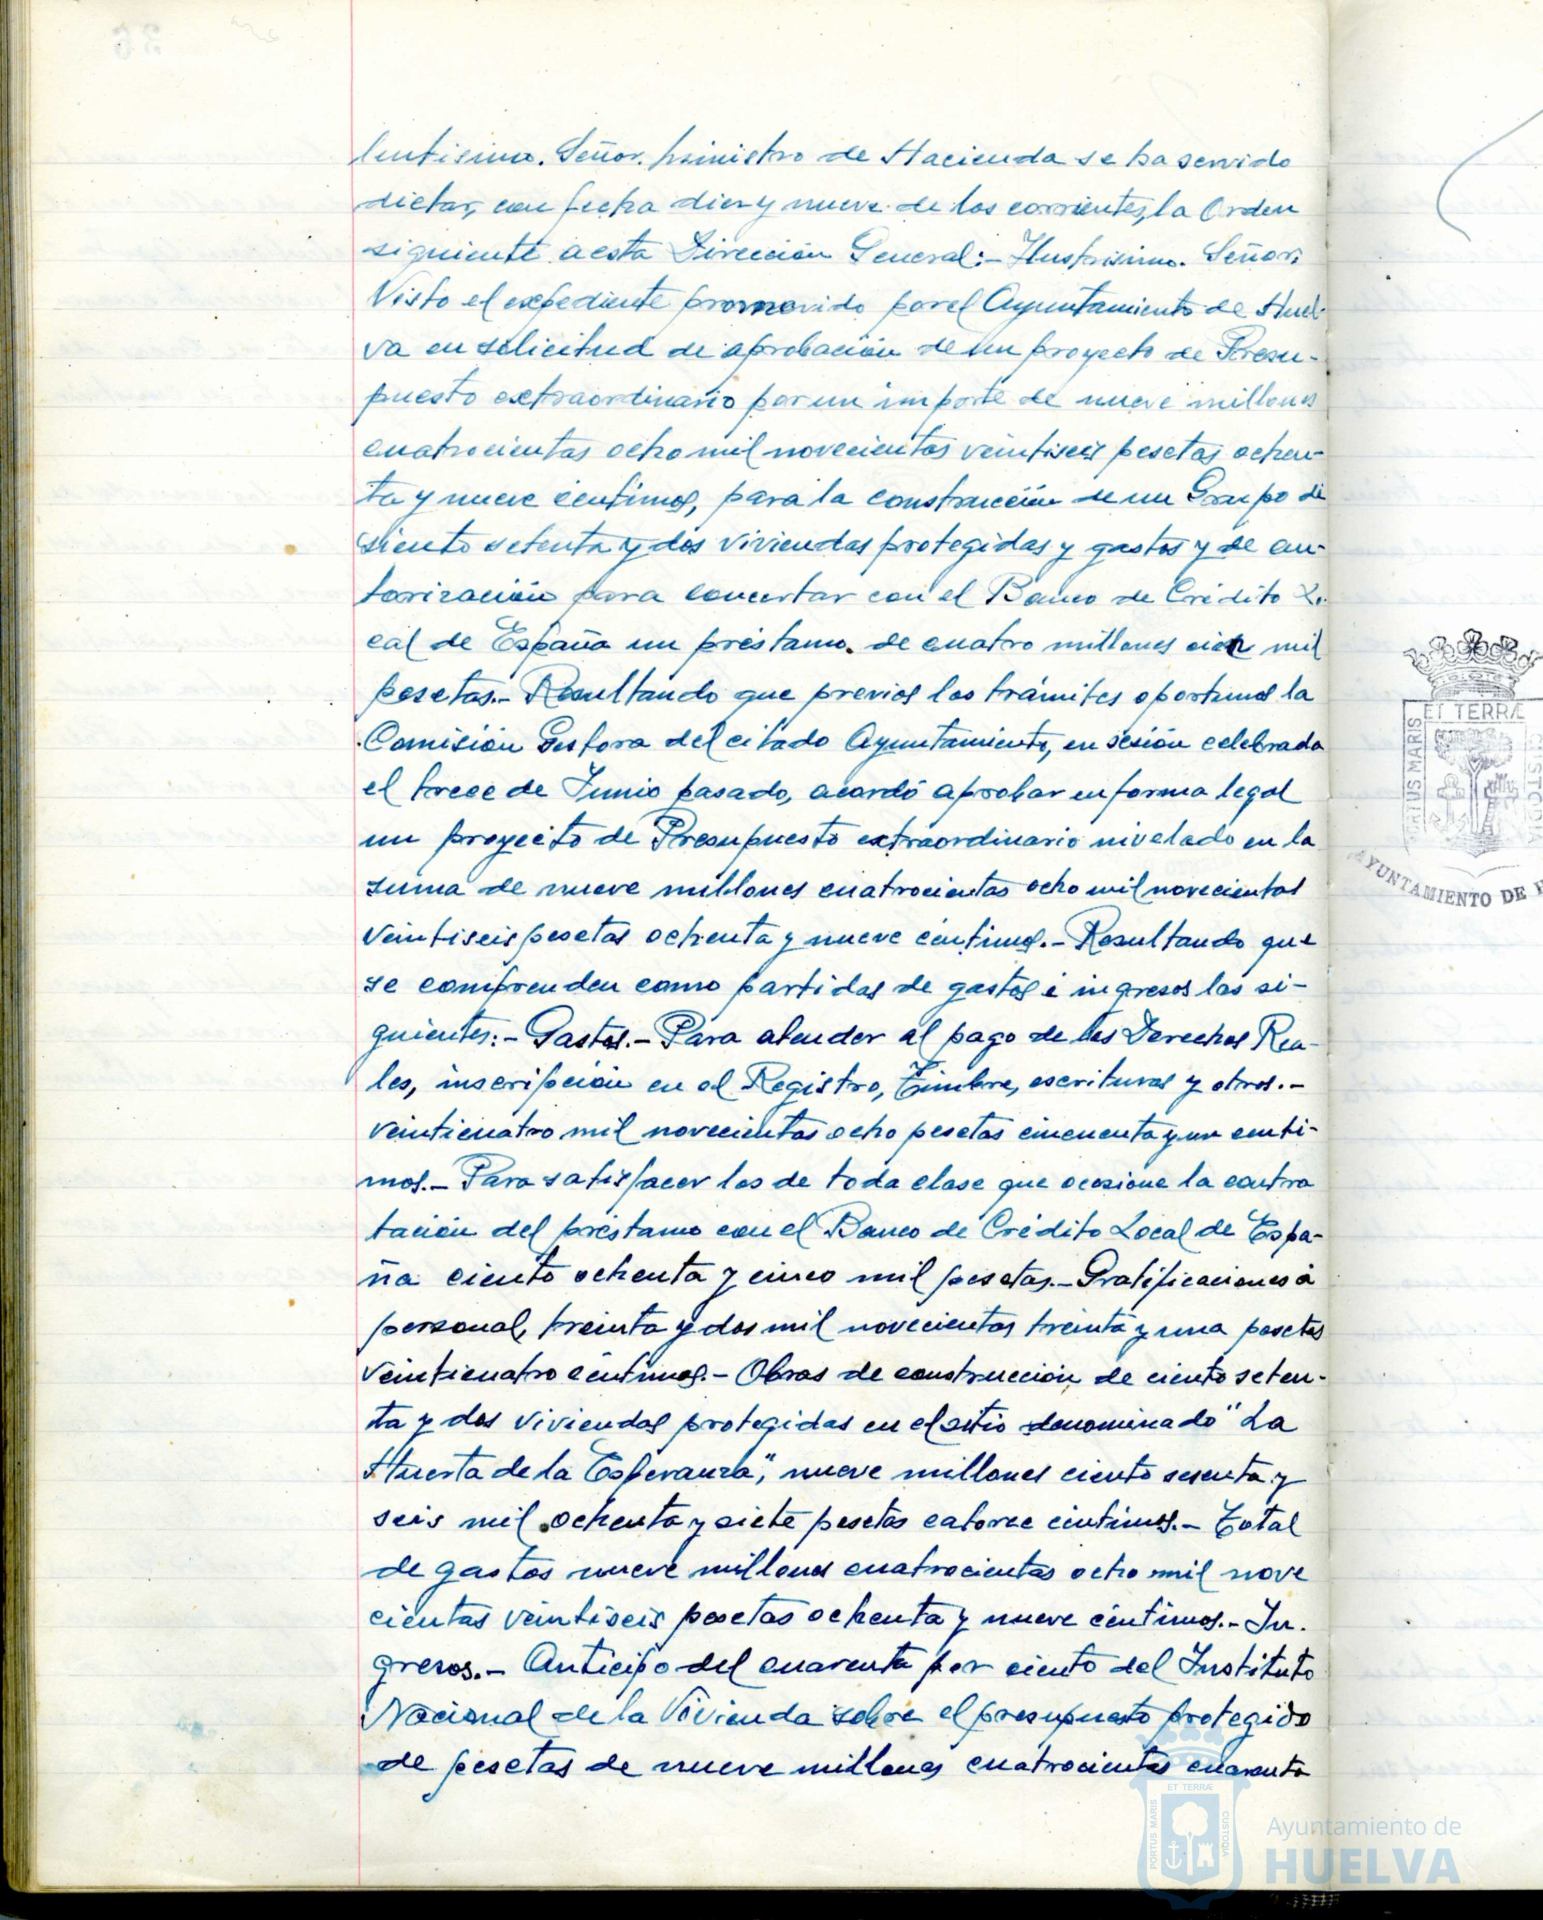 lentísimo. Señor. Ministro de Hacienda se ha servido
dictar, con fecha diez y nueve de los corrientes, la Orden
siguiente a esta Dirección General:- Ilustrísimo. Señor:
Visto el expediente promovido por el Ayuntamiento de Huel-
va en solicitud de aprobación de un proyecto de Presu-
puesto extraordinario por un importe de nueve millones
cuatrocientas ocho mil novecientas veintiseis pesetas ochen-
ta y nueve céntimos, para la construcción de un Grupo de
ciento setenta y dos viviendas protegidas y gastos y de au-
torización para concertar con el Banco de Crédito Lo-
cal de España un préstamo. de cuatro millones cien mil
pesetas.- Resultando que previos los trámites oportunos la
Comisión Gestora del citado Ayuntamiento, en sesión celebrada
el trece de Junio pasado, acordó aprobar en forma legal
un proyecto de Presupuesto extraordinario nivelado en la
suma de nueve millones cuatrocientas ocho mil novecientas
veintiseis pesetas ochenta y nueve céntimos.- Resultando que
se comprenden como partidas de gastos é ingresos las si-
guientes:- Gastos.- Para atender al pago de los Derechos Rea-
les, inscripción en el Registro, Timbre, escrituras y otros.-
veinticuatro mil novecientas ocho pesetas cincuenta y un cénti-
mos.- Para satisfacer los de toda clase que ocasione la contra
tación del préstamo con el Banco de Crédito Local de Espa-
ña ciento ochenta y cinco mil pesetas.- Gratificaciones á
personal, treinta y dos mil novecientas treinta y una pesetas
veinticuatro céntimos.- Obras de construcción de ciento seten-
ta y dos viviendas protegidas en el sitio denominado "La
Huerta de la Esperanza", nueve millones ciento sesenta y
seis mil ochenta y siete pesetas catorce céntimos.- Total
de gastos nueve millones cuatrocientas ocho mil nove
cientas veintiseis pesetas ochenta y nueve céntimos.- In-
gresos.- Anticipo del cuarenta por ciento del Instituto
Nacional de la Vivienda sobre el presupuesto protegido
de pesetas de nueve millones cuatrocientas cuarenta
ET TERRÆ
PORTUS MARIS
CUSTODIA
AYUNTAMIENTO DE H
ET TERRÆ
PORTUS MARIS
CUSTODIA
Ayuntamiento de
HUELVA